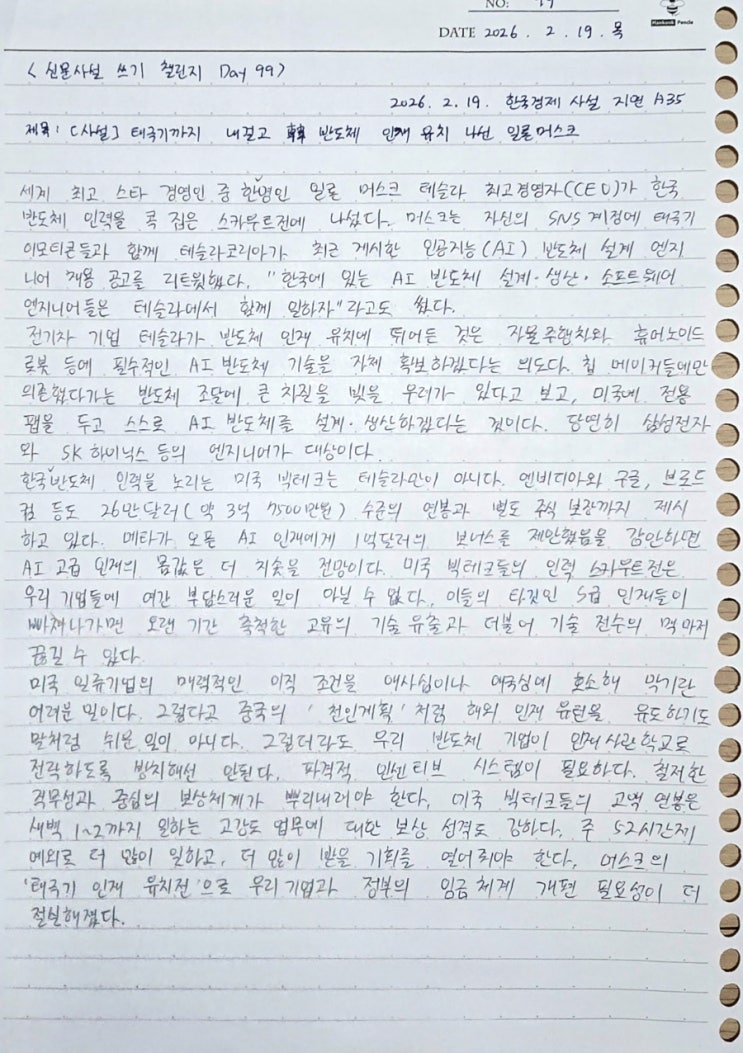 NO: 99
Hankook Pencle
DATE 2026. 2. 19. 목
< 신문사설 쓰기 챌린지 Day 99 >
2026. 2. 19. 한국경제 사설 지면 A35
제목 : [사설] 태극기까지 내걸고 韓 반도체 인재 유치 나선 일론머스크
세계 최고 스타 경영인 중 한명인 일론 머스크 테슬라 최고경영자(CEO)가 한국
반도체 인력을 콕 집은 스카우트전에 나섰다. 머스크는 자신의 SNS 계정에 태극기
이모티콘들과 함께 테슬라코리아가 최근 게시한 인공지능(AI) 반도체 설계 엔지
니어 채용 공고를 리트윗했다. "한국에 있는 AI 반도체 설계·생산·소프트웨어
엔지니어들은 테슬라에서 함께 일하자"라고도 썼다.
전기차 기업 테슬라가 반도체 인재 유치에 뛰어든 것은 자율주행차와 휴머노이드
로봇 등에 필수적인 AI 반도체 기술을 자체 확보하겠다는 의도다. 칩 메이커들에만
의존했다가는 반도체 조달에 큰 차질을 빚을 우려가 있다고 보고, 미국에 전용
팹을 두고 스스로 AI 반도체를 설계·생산하겠다는 것이다. 당연히 삼성전자
와 SK 하이닉스 등의 엔지니어가 대상이다.
한국 반도체 인력을 노리는 미국 빅테크는 테슬라만이 아니다. 엔비디아와 구글, 브로드
컴 등도 26만달러(약 3억 7500만원) 수준의 연봉과 별도 주식 보장까지 제시
하고 있다. 메타가 오픈 AI 인재에게 1억달러의 보너스를 제안했음을 감안하면
AI 고급 인재의 몸값은 더 치솟을 전망이다. 미국 빅테크들의 인력 스카우트전은
우리 기업들에 여간 부담스러운 일이 아닐 수 없다. 이들의 타깃인 S급 인재들이
빠져나가면 오랜 기간 축적한 고유의 기술 유출과 더불어 기술 전수의 맥마저
끊길 수 있다.
미국 일류기업의 매력적인 이직 조건을 애사심이나 애국심에 호소해 막기란
어려운 일이다. 그렇다고 중국의 '천인계획'처럼 해외 인재 유턴을 유도하기도
말처럼 쉬운 일이 아니다. 그렇더라도 우리 반도체 기업이 인재사관학교로
전락하도록 방치해선 안된다. 파격적 인센티브 시스템이 필요하다. 철저한
직무성과 중심의 보상체계가 뿌리내려야 한다. 미국 빅테크들의 고액 연봉은
새벽 1~2까지 일하는 고강도 업무에 대한 보상 성격도 강하다. 주 52시간제
예외로 더 많이 일하고, 더 많이 받을 기회를 열어줘야 한다. 머스크의
'태극기 인재 유치전'으로 우리 기업과 정부의 임금체계 개편 필요성이 더
절실해졌다.